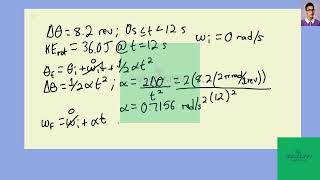 Δθ = 8.2 rev; 0s ≤ t < 12 s ωi = 0 rad/s
KErot = 36.0J @ t = 12 s
θf = θi + ωit + 1/2 αt²
Δθ = 1/2 αt²; α = 2Δθ/t² = 2(8.2(2π rad/1rev))/(12)²
α = 0.7156 rad/s²
0
ωf = ωi + αt